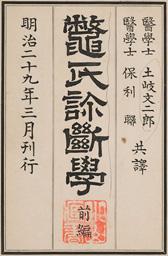 醫學士 土岐文二郎
醫學士 保利聯 共譯
鼈氏診斷學
前編
明治二十九年三月刊行